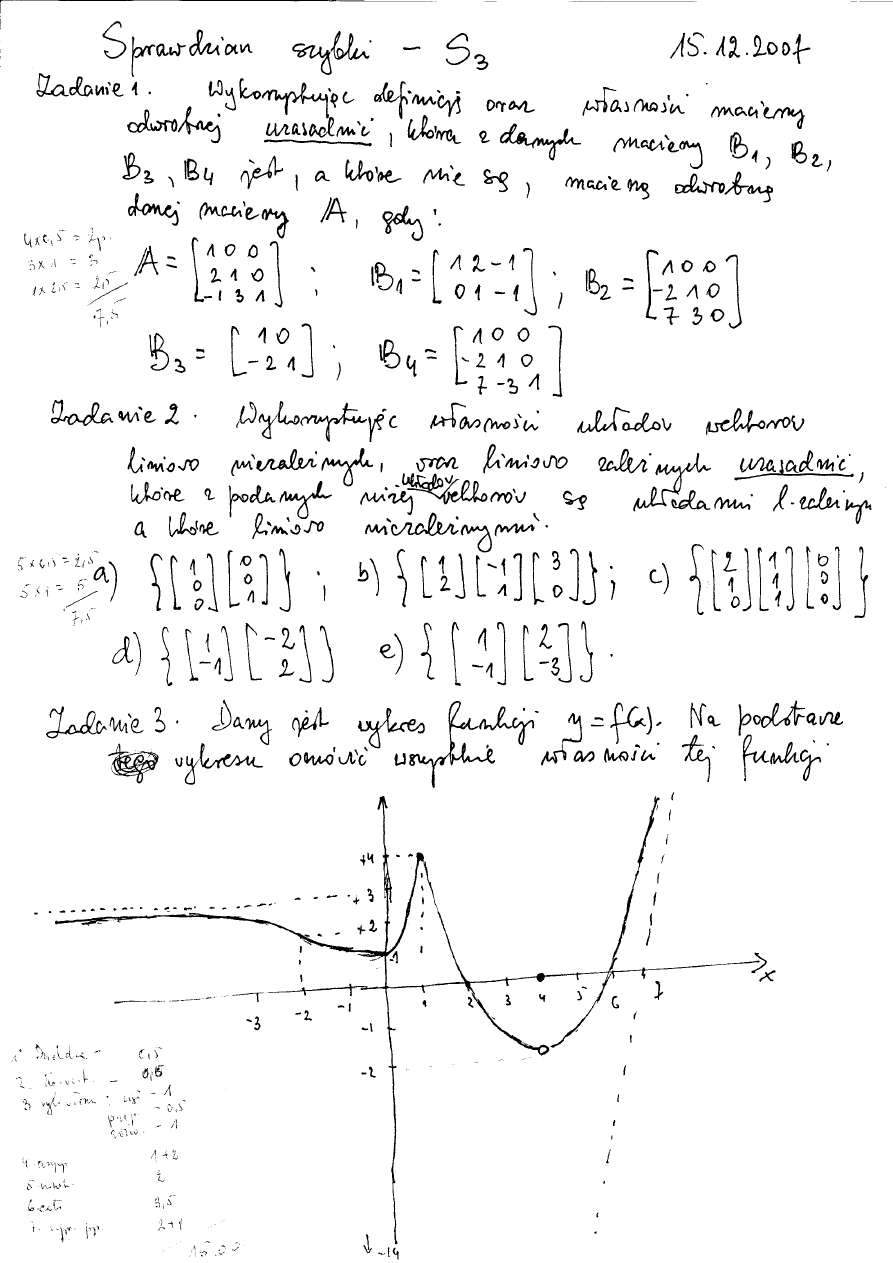 Sprawdzian szybki – S3 15.12.2007
Zadanie 1. Wykorzystując definicję oraz własności macierzy
odwrotnej uzasadnić, która z danych macierzy B1, B2,
B3, B4 jest, a które nie są, macierzą odwrotną
danej macierzy A, gdy:
4x0,5 = 2p.
3x1 = 3
1x2,5 = 2,5
7,5
A = [1 0 0
2 1 0
-1 3 1] ; B1 = [1 2 -1
0 1 -1] ; B2 = [1 0 0
-2 1 0
7 3 0]
B3 = [1 0
-2 1] ; B4 = [1 0 0
-2 1 0
7 -3 1]
Zadanie 2. Wykorzystując własności układów wektorów
liniowo niezależnych, oraz liniowo zależnych uzasadnić,
które z podanych niżej układów wektorów są układami l. zależnym
a które liniowo niezależnymi.
5x0,5 = 2,5
5x1 = 5
7,5
a) {[1 0 0] [0 0 1]} ; b) {[1 2] [-1 1] [3 0]} ; c) {[2 1 0] [1 1 1] [0 0 0]}
d) {[1 -1] [-2 2]} e) {[1 -1] [2 -3]}.
Zadanie 3. Dany jest wykres funkcji y = f(x). Na podstawie
tego wykresu omówić wszystkie własności tej funkcji
+4
+3
+2
1
-3 -2 -1 1 2 3 4 5 6 7 x
-1
-2
-14
1° Dziedzina - 0,5
2. - 0,5
3 - 1
- 0,5
- 1
4. asymp 1+2
5 2
6 3,5
7. 2+1
15.00